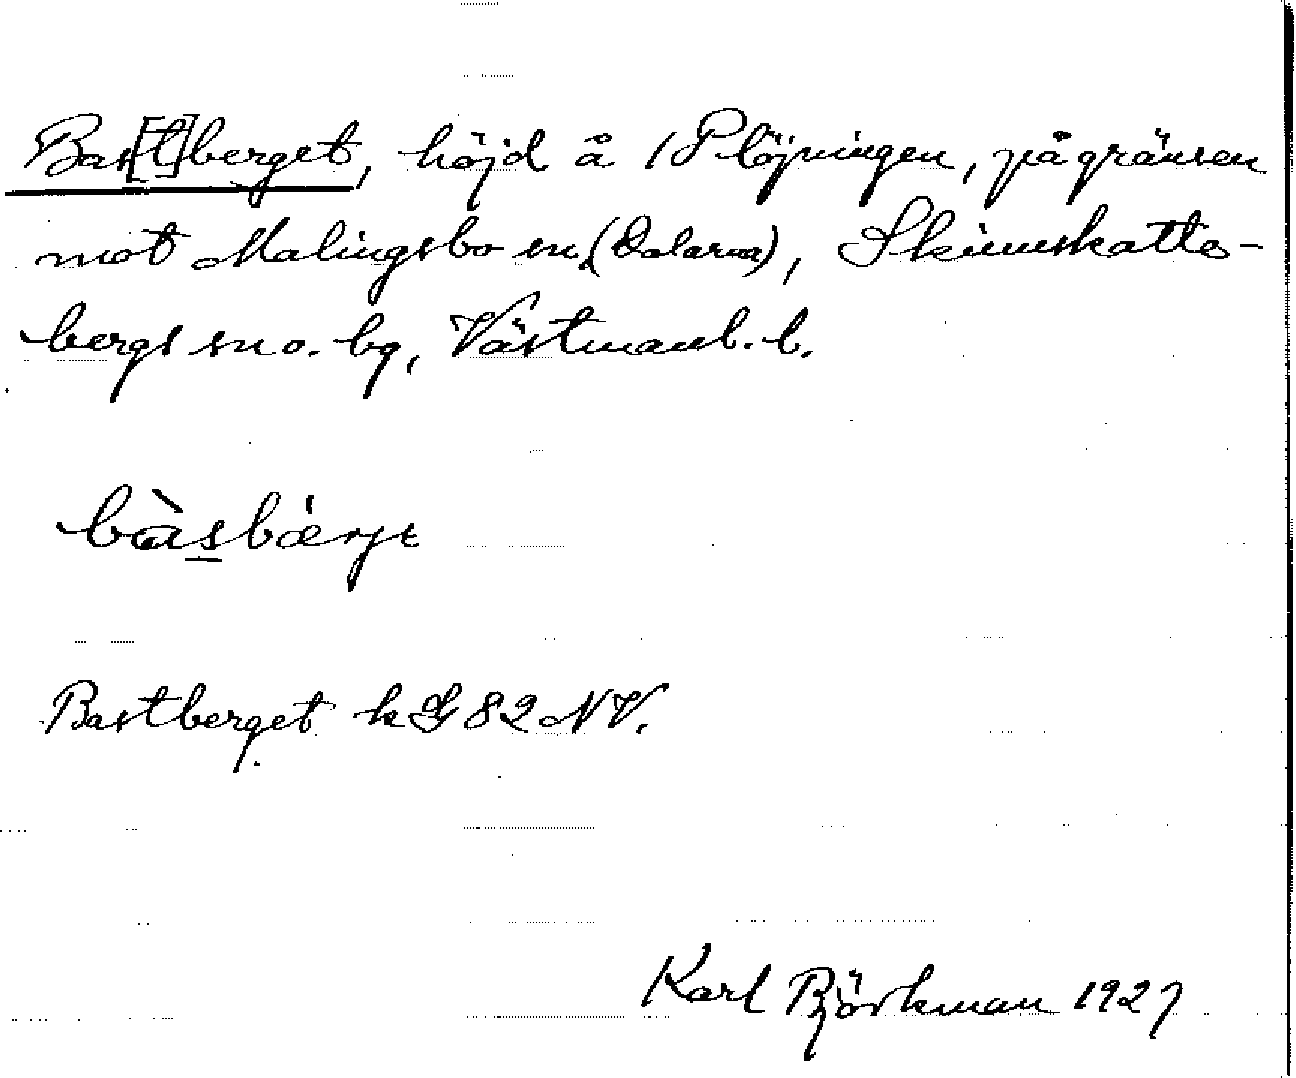 Bas[t]berget, höjd å Plöjningen, på gränsen
mot Malingsbo sn (Dalarna), Skinnskatte-
bergs sn o. bg, Västmanl. l.
bàsbǽrjɛ
Bastberget k G 82 NV.
Karl Björkman 1927